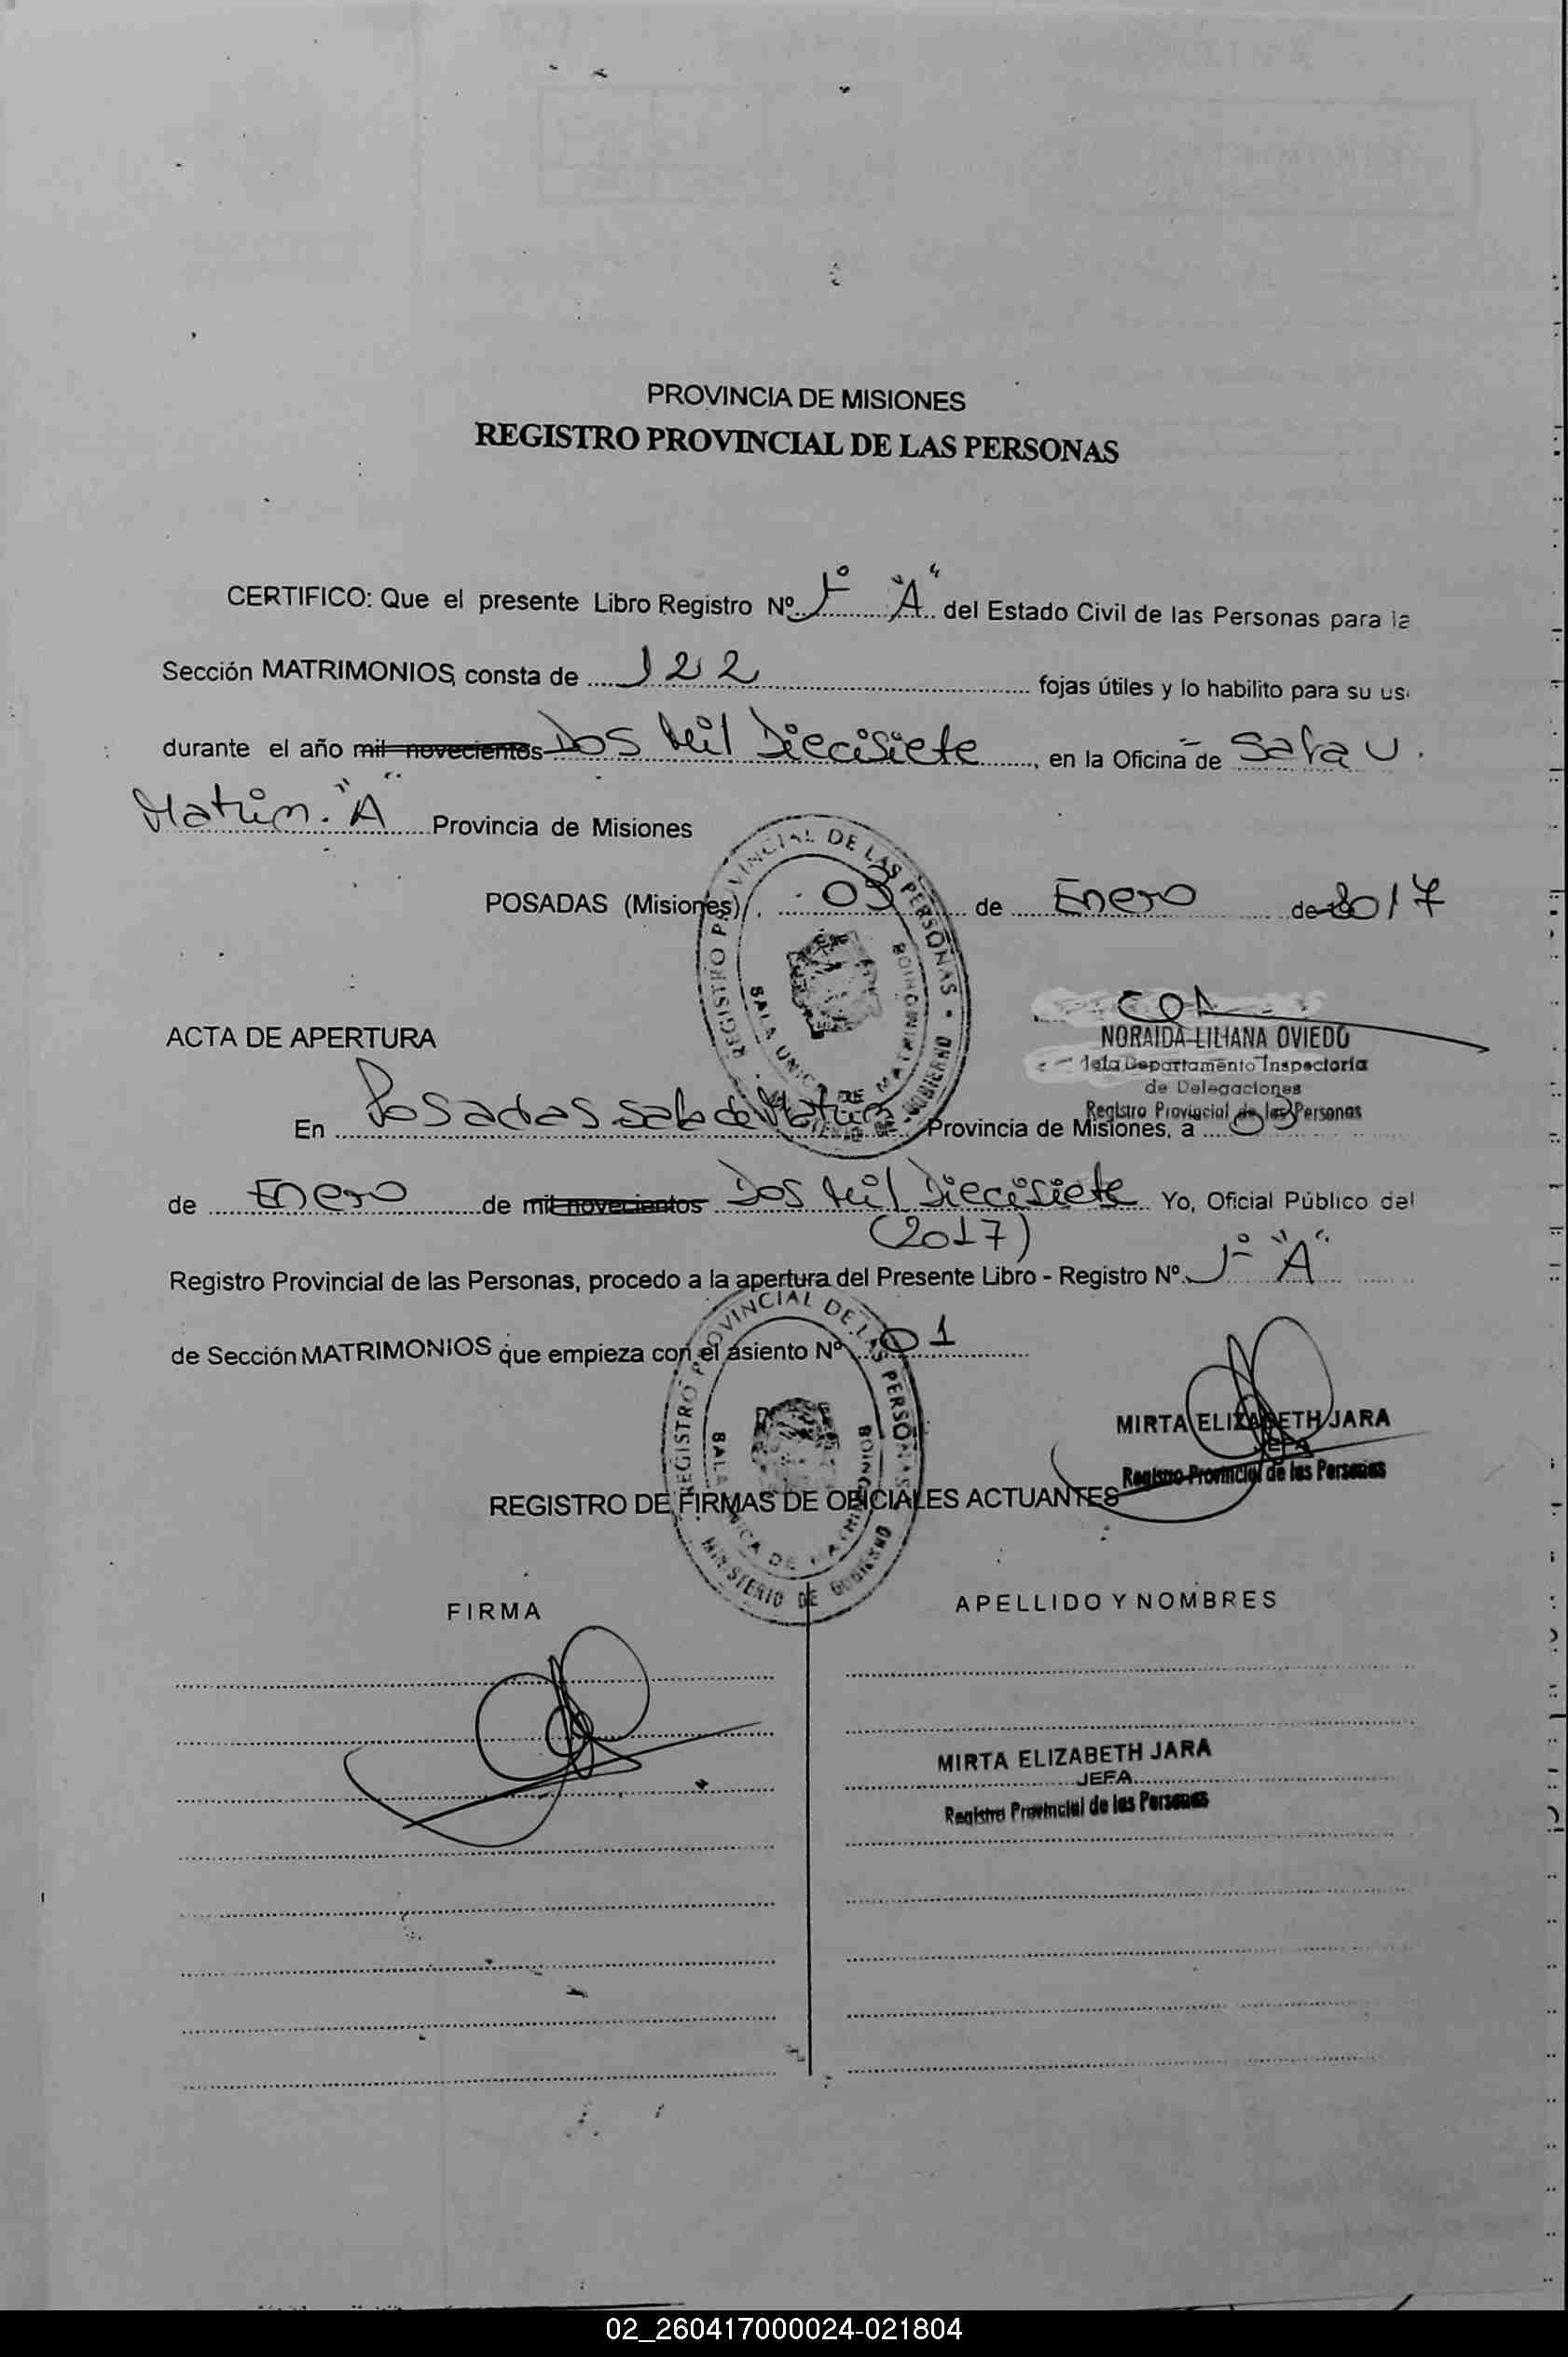 PROVINCIA DE MISIONES
REGISTRO PROVINCIAL DE LAS PERSONAS
CERTIFICO: Que el presente Libro Registro Nº 1º "A" del Estado Civil de las Personas para la
Sección MATRIMONIOS, consta de 122 fojas útiles y lo habilito para su us
durante el año mil novecientos Dos Mil Diecisiete, en la Oficina de Sala U.
Matrim. "A" Provincia de Misiones
POSADAS (Misiones), 03 de Enero de 2017
NORAIDA LILIANA OVIEDO
Departamento Inspectoria
de Delegaciones
Registro Provincial de las Personas
ACTA DE APERTURA
En Posadas Sala de Matrim Provincia de Misiones, a 03
de Enero de mil novecientos Dos Mil Diecisiete Yo, Oficial Público del
(2017)
Registro Provincial de las Personas, procedo a la apertura del Presente Libro - Registro Nº 1º "A"
de Sección MATRIMONIOS que empieza con el asiento Nº 01
MIRTA ELIZABETH JARA
JEFA
Registro Provincial de las Personas
REGISTRO PROVINCIAL DE LAS PERSONAS • MINISTERIO DE GOBIERNO
SALA UNICA DE MATRIMONIOS
REGISTRO DE FIRMAS DE OFICIALES ACTUANTES
FIRMA APELLIDO Y NOMBRES
MIRTA ELIZABETH JARA
JEFA
Registro Provincial de las Personas
02_260417000024-021804